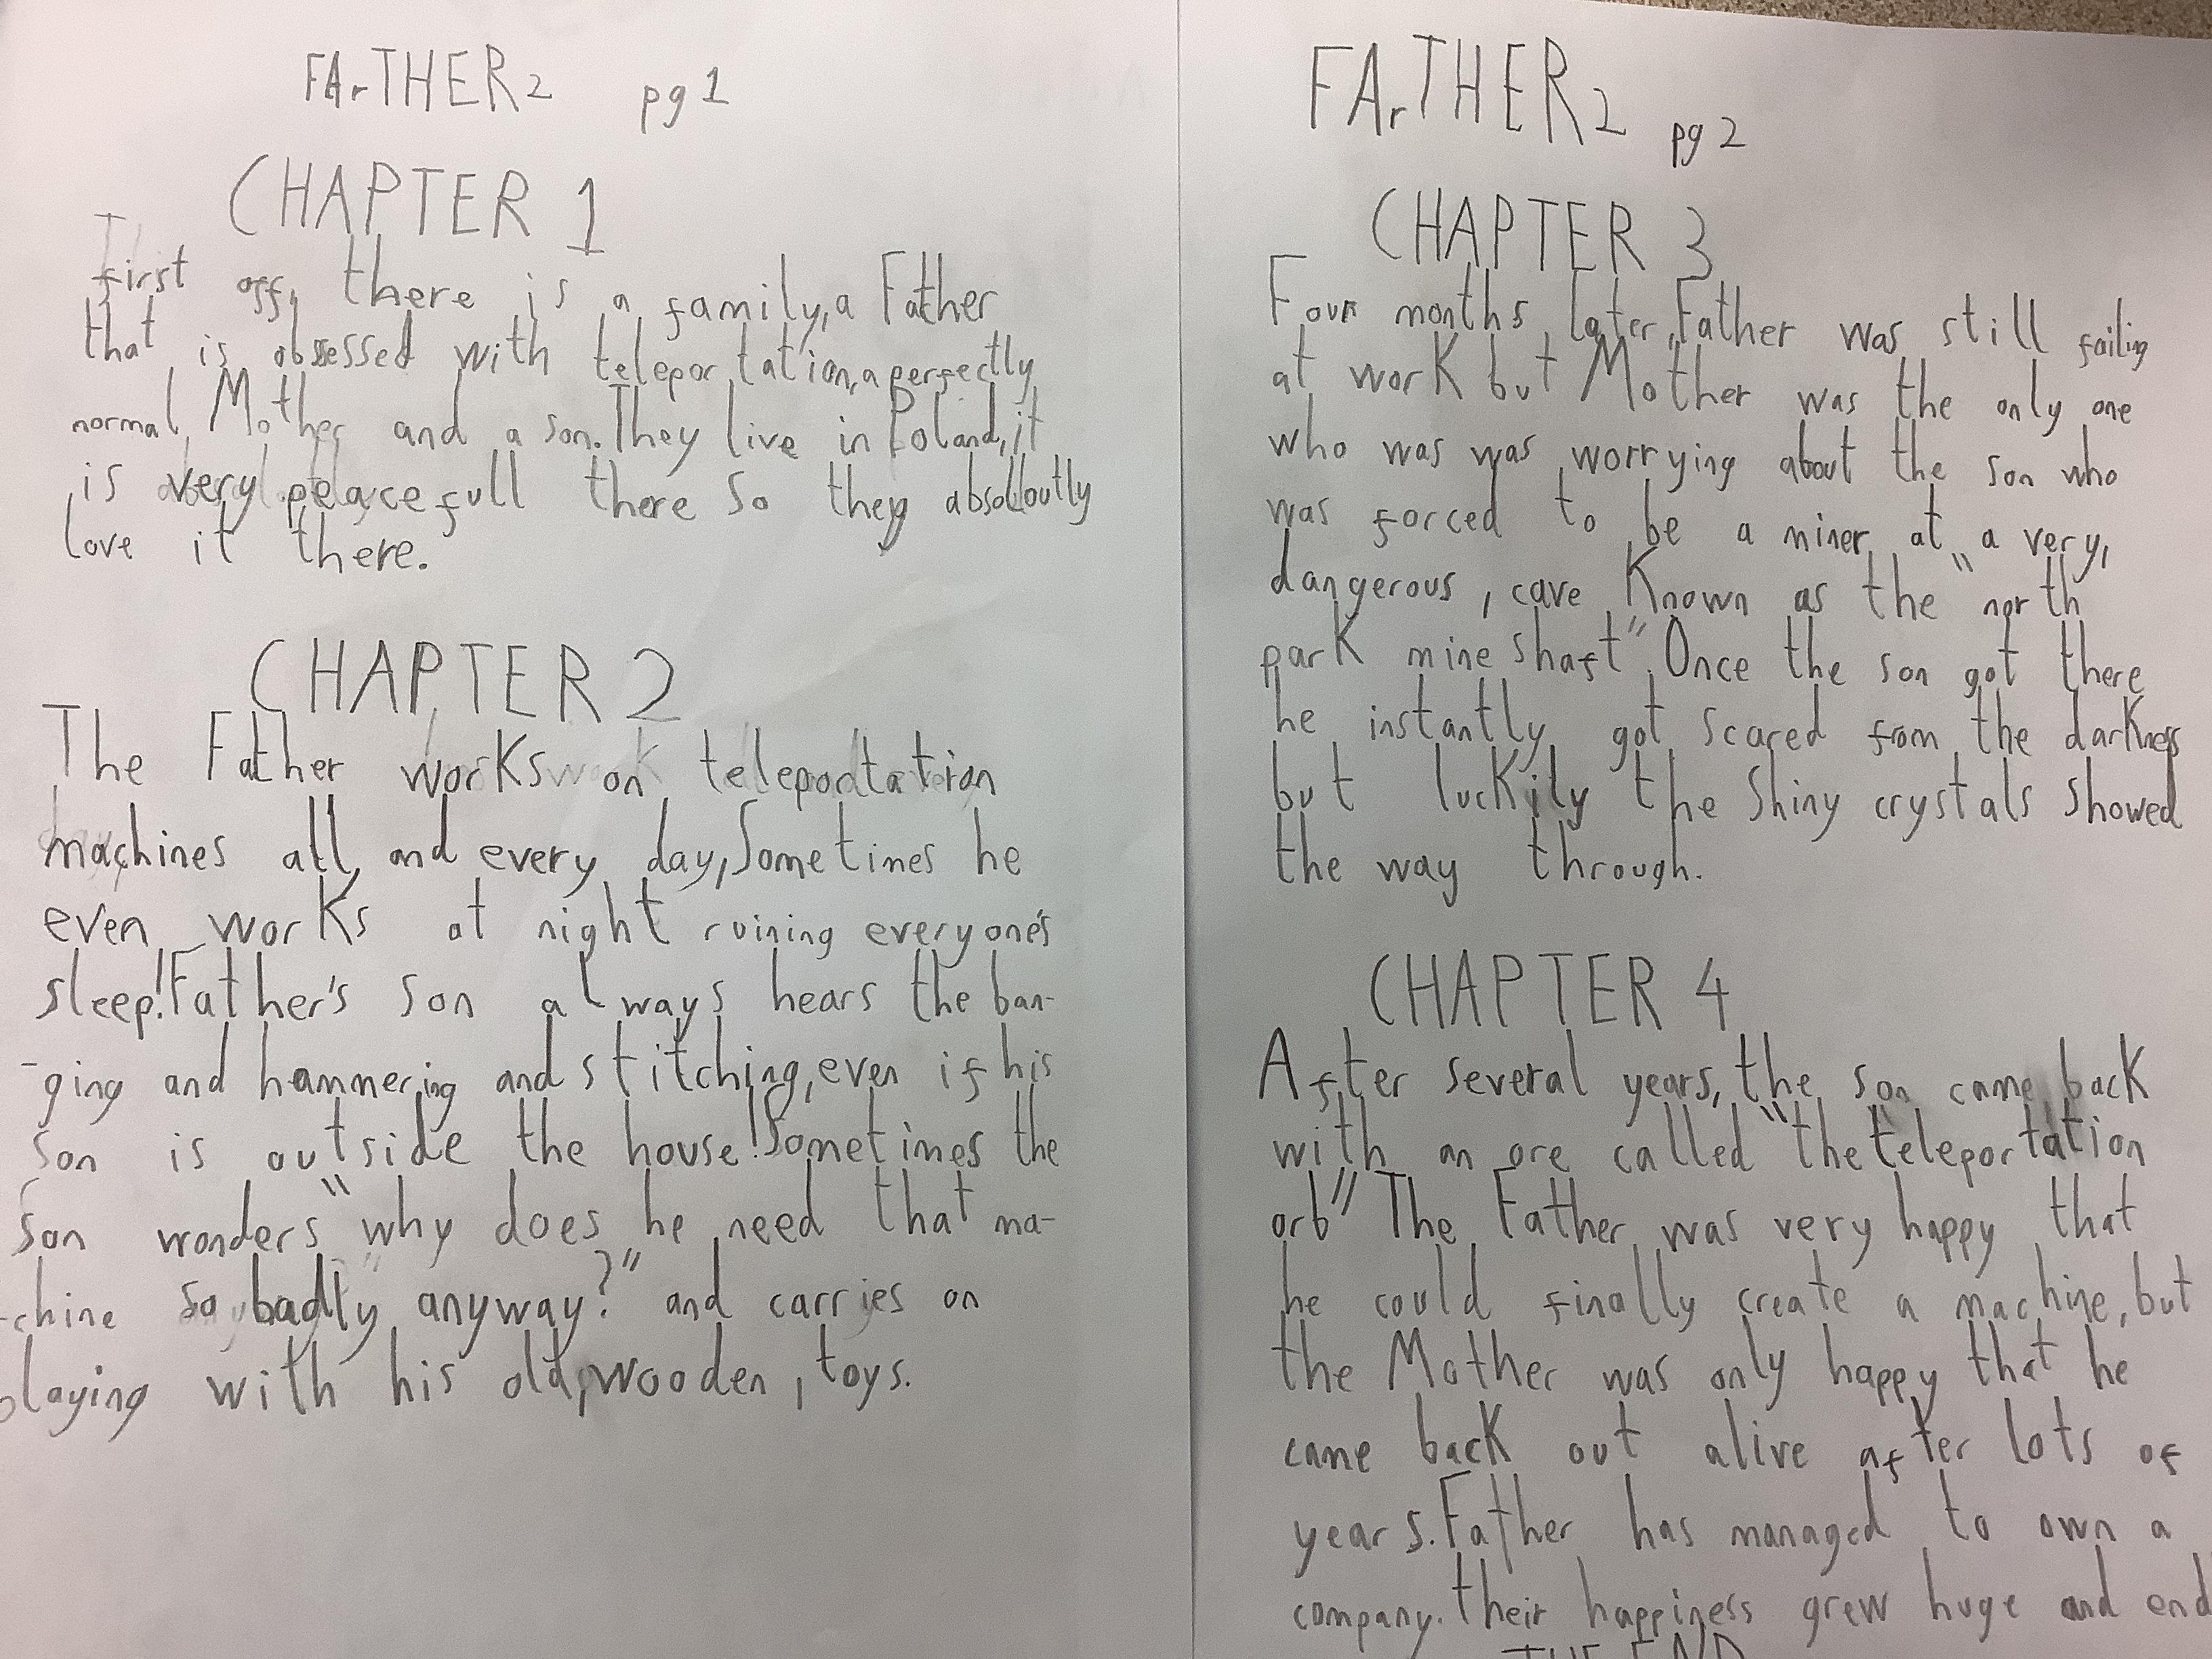 FArTHER 2 pg 1
CHAPTER 1
first off, there is a family, a Father
that is obsessed with teleportation, a perfectly
normal, Mother and a son. They live in Poland, it
is very peacefull there so they absoloutly
love it there.
CHAPTER 2
The Father works on teleportation
machines all and every day, Sometimes he
even works at night ruining everyone's
sleep! Father's son always hears the ban-
-ging and hammering and stitching, even if his
son is outside the house! Sometimes the
son wonders "why does he need that ma-
-chine so badly anyway?" and carries on
playing with his old, wooden, toys.
FArTHER 2 pg 2
CHAPTER 3
Four months later, Father was still failing
at work but Mother was the only one
who was was worrying about the son who
was forced to be a miner at a very,
dangerous, cave Known as the "north
park mine shaft". Once the son got there
he instantly got scared from the darkness
but luckily the shiny crystals showed
the way through.
CHAPTER 4
After several years, the son came back
with an ore called "the teleportation
orb" The Father was very happy that
he could finally create a machine, but
the Mother was only happy that he
came back out alive after lots of
years. Father has managed to own a
company. their happiness grew huge and end
THE END